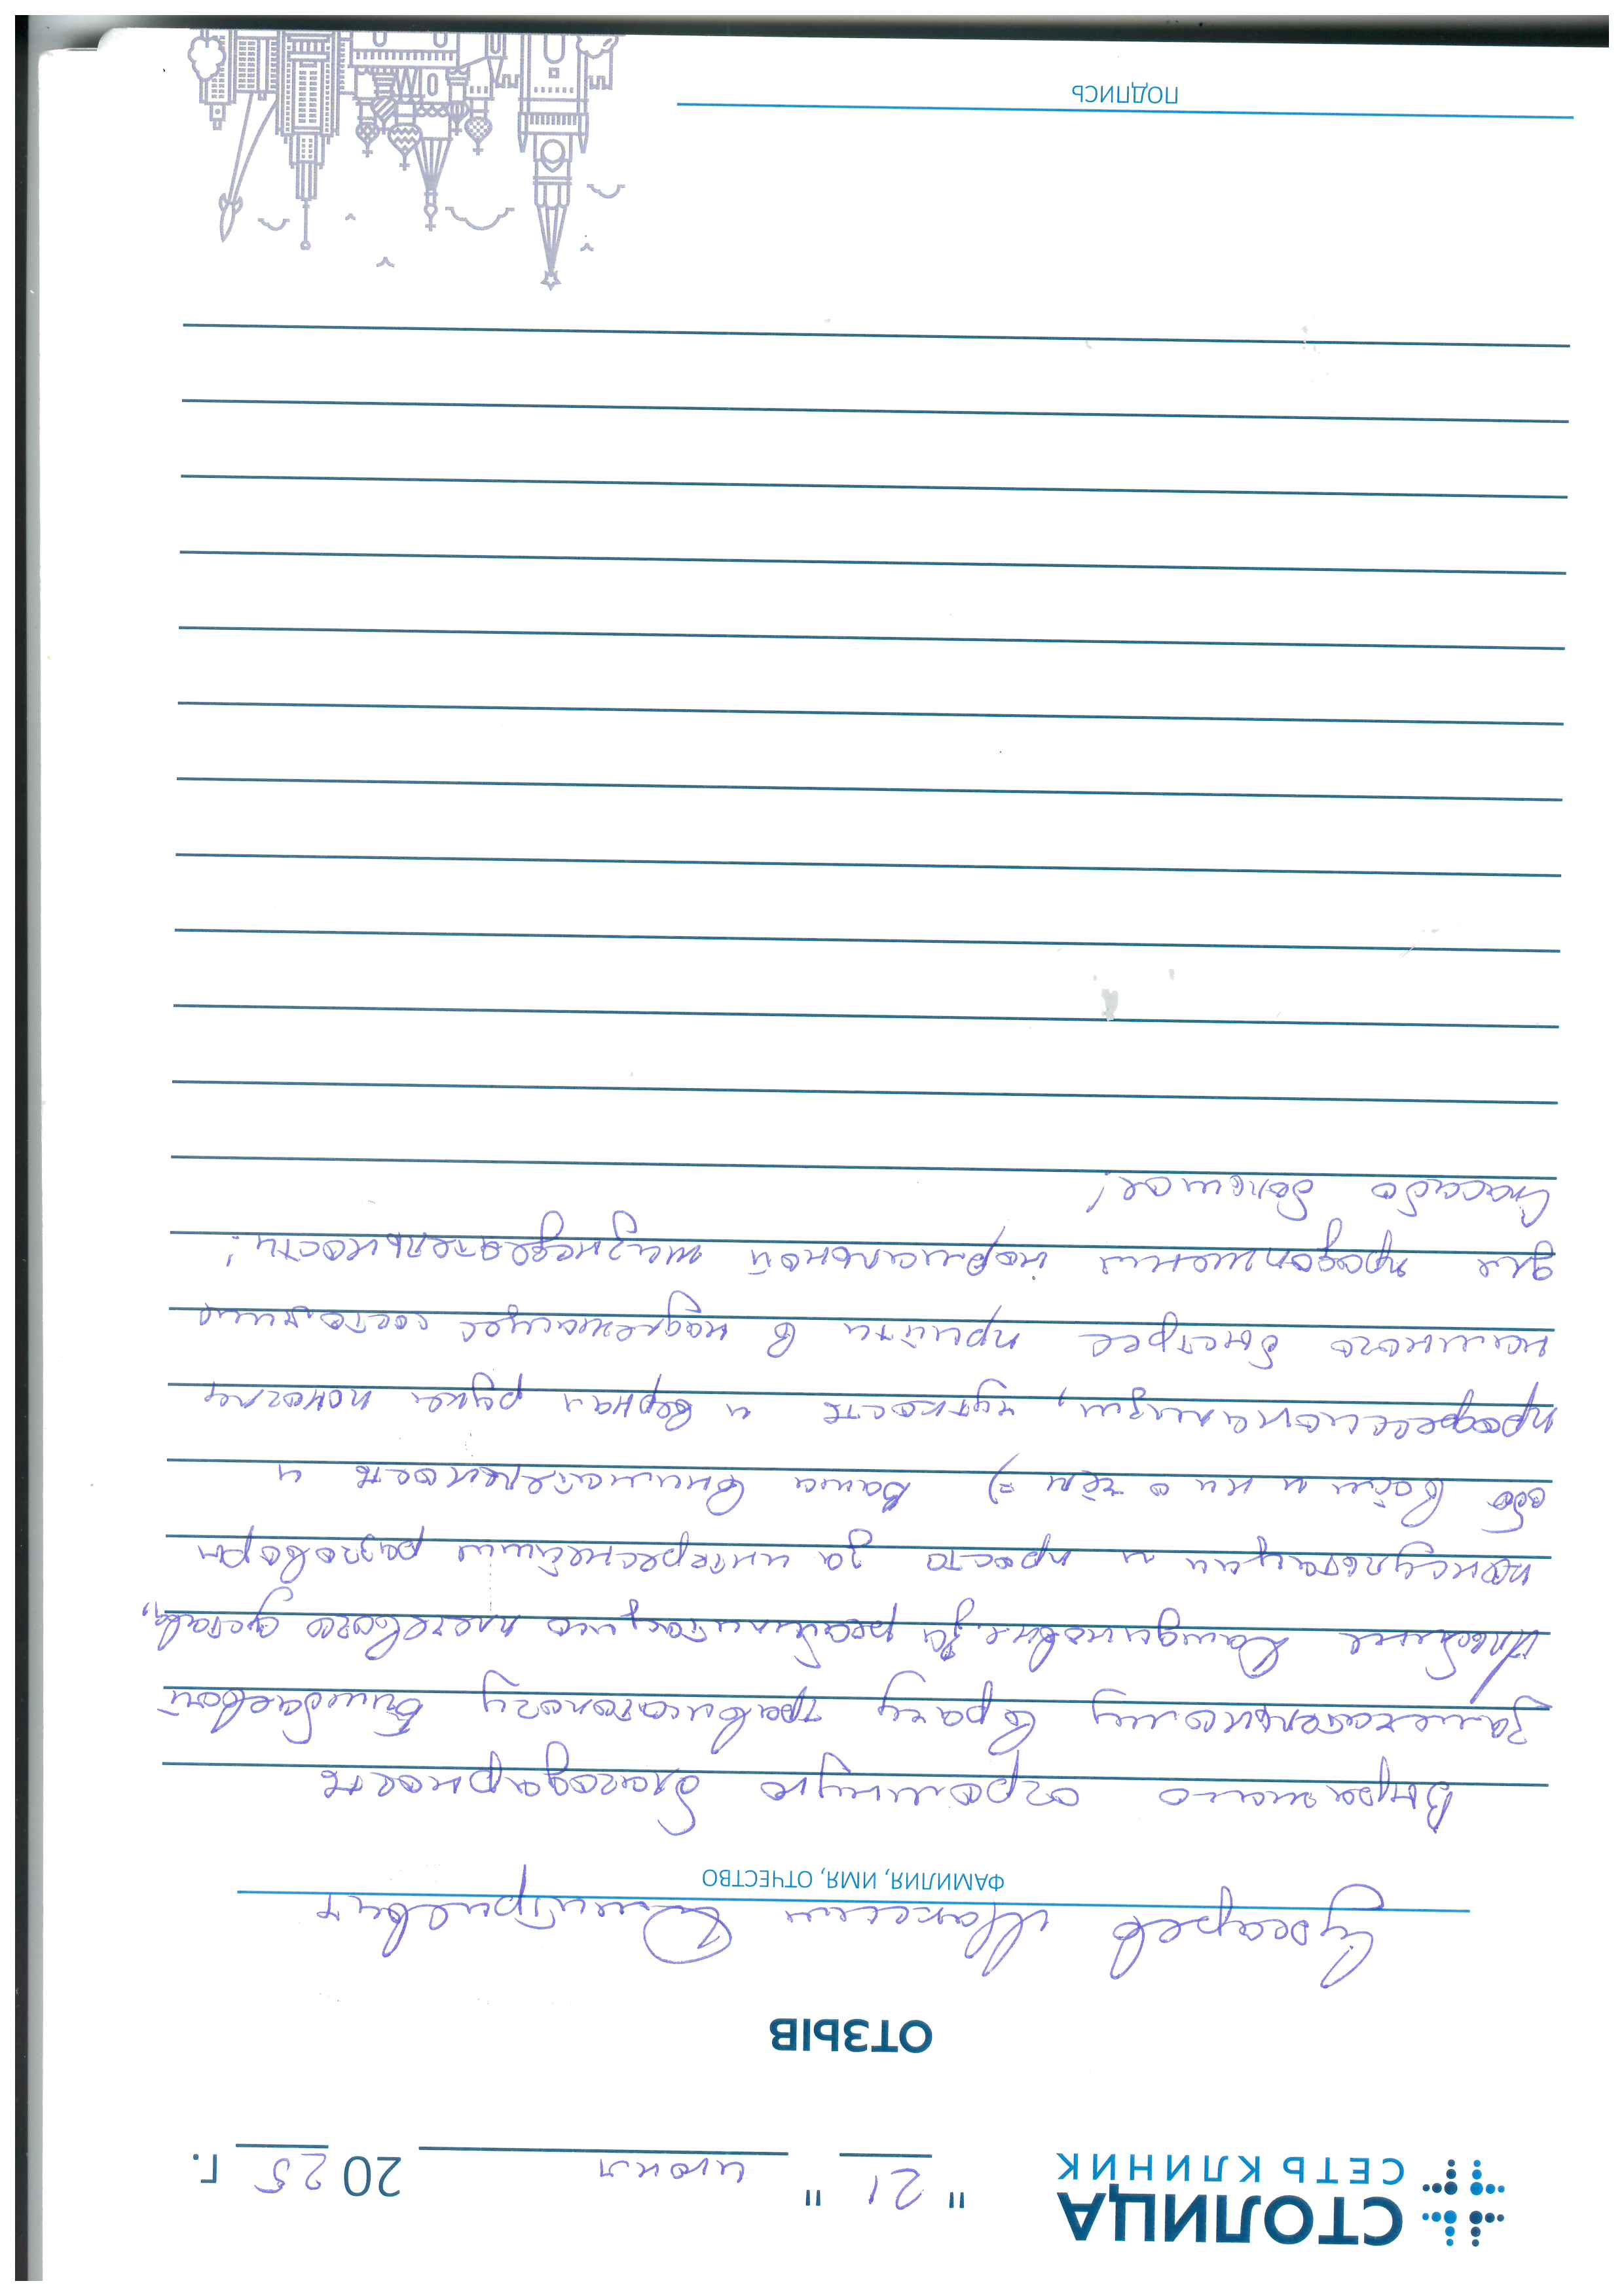 СТОЛИЦА
СЕТЬ КЛИНИК
" 21 " июня 2025 г.
ОТЗЫВ
Сухарев Максим Дмитриевич
ФАМИЛИЯ, ИМЯ, ОТЧЕСТВО
Выражаю огромную благодарность
Замечательному врачу травматологу Бимбаевой
Изабелле за реабилитацию плечевого сустава,
консультации и просто за интереснейшие разговоры
обо всём и ни о чём =) Ваша внимательность и
профессионализм, чуткость и верная рука помогли
намного быстрее прийти в надлежащее состояние
для продолжения нормальной жизнедеятельности!
Спасибо большое!
ПОДПИСЬ